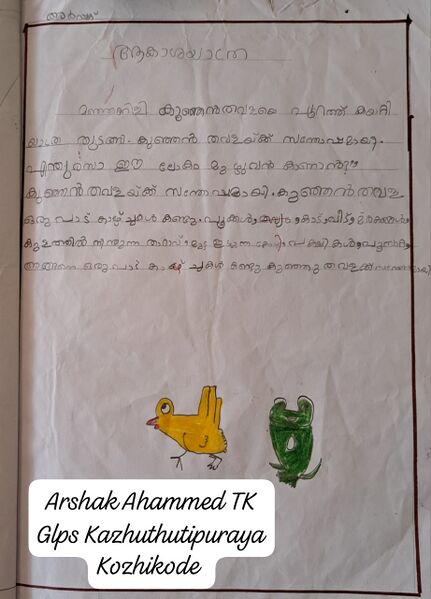 അർഷക്
ആകാശയാത്ര
മഞ്ഞക്കിളി കുഞ്ഞൻതവളയെ പുറത്ത് കയറ്റി
യാത്ര തുടങ്ങി. കുഞ്ഞൻ തവളയ്ക്ക് സന്തോഷമായി.
ഈ ലോകം മുഴുവൻ കാണാൻ
കുഞ്ഞൻതവളയ്ക്ക് സന്തോഷമായി. കുഞ്ഞൻ തവള
ഒരുപാട് കാഴ്ച്ചകൾ കണ്ടു. പൂക്കൾ, കാട്, വീട്, മരങ്ങൾ,
കുളത്തിൽ നീന്തുന്ന താറാവ്, പക്ഷികൾ,
അങ്ങനെ ഒരുപാട് കാഴ്ചകൾ കണ്ടു കുഞ്ഞു തവളക്ക്
Arshak Ahammed TK
Glps Kazhuthutipuraya
Kozhikode